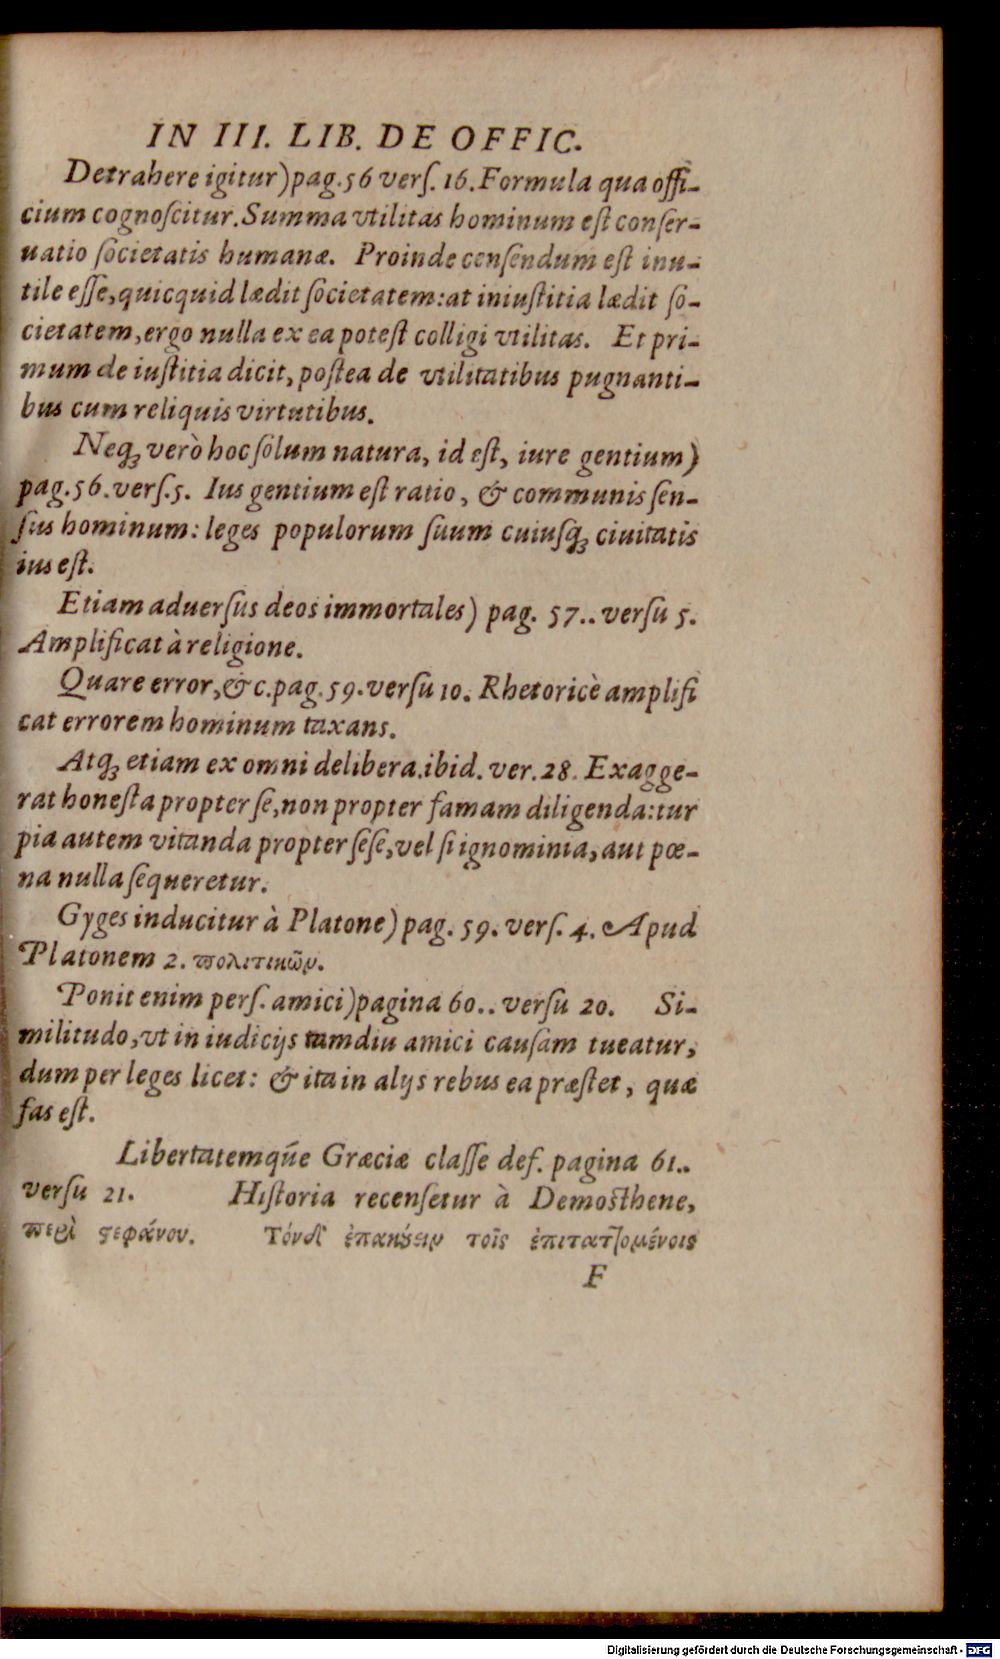 IN III. LIB. DE OFFIC.
Detrahere igitur) pag. 56 verſ. 16. Formula qua offi-
cium cognoſcitur. Summa vtilitas hominum eſt conſer-
uatio ſocietatis humanæ. Proinde cenſendum eſt inu-
tile eſſe, quicquid lædit ſocietatem: at iniuſtitia lædit ſo-
cietatem, ergo nulla ex ea poteſt colligi vtilitas. Et pri-
mum de iuſtitia dicit, poſtea de vtilitatibus pugnanti-
bus cum reliquis virtutibus.
Neq́; verò hoc ſolum natura, id eſt, iure gentium)
pag. 56. verſ. 5. Ius gentium eſt ratio, & communis ſen-
ſus hominum: leges populorum ſuum cuiuſq́; ciuitatis
ius eſt.
Etiam aduerſus deos immortales) pag. 57.. verſu 5.
Amplificat à religione.
Quare error, &c. pag. 59. verſu 10. Rhetoricè amplifi
cat errorem hominum taxans.
Atq́; etiam ex omni delibera. ibid. ver. 28. Exagge-
rat honeſta propter ſe, non propter famam diligenda: tur
pia autem vitanda propter ſeſe, vel ſi ignominia, aut pœ-
na nulla ſequeretur.
Gyges inducitur à Platone) pag. 59. verſ. 4. Apud
Platonem 2. πολιτικῶν.
Ponit enim perſ. amici) pagina 60.. verſu 20. Si-
militudo, vt in iudicijs tamdiu amici cauſam tueatur,
dum per leges licet: & ita in alijs rebus ea præſtet, quæ
fas eſt.
Libertatemq́ue Græciæ claſſe def. pagina 61..
verſu 21. Hiſtoria recenſetur à Demoſthene,
περὶ ϛεφάνου. Τόνδ' ἐπακούειν τοῖς ἐπιταττομένοις
F
Digitalisierung gefördert durch die Deutsche Forschungsgemeinschaft - DFG